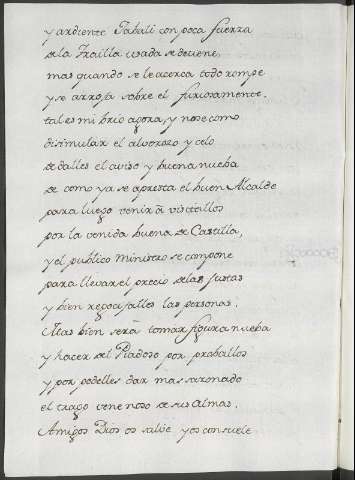 y ardiente Jabali con poca fuerza
de la Trailla usada se detiene,
mas quando se le acerca todo rompe
y se arroja sobre el furiosamente.
tal es mi brio agora, y no se como
disimular el alvorozo y celo
de dalles el aviso y buena nueba
de como ya se apresta el buen Alcalde
para luego venir a visitallos
por la venida buena de Castilla,
y el publico Ministro se compone
para llevar el precio de las justas
y bien regocijalles las personas.
Mas bien sera tomar figura nueba
y hacer del Piadoso por proballos
y por podelles dar mas sazonado
el trago venenoso de sus Almas.
Amigos Dios os salve y os consuele